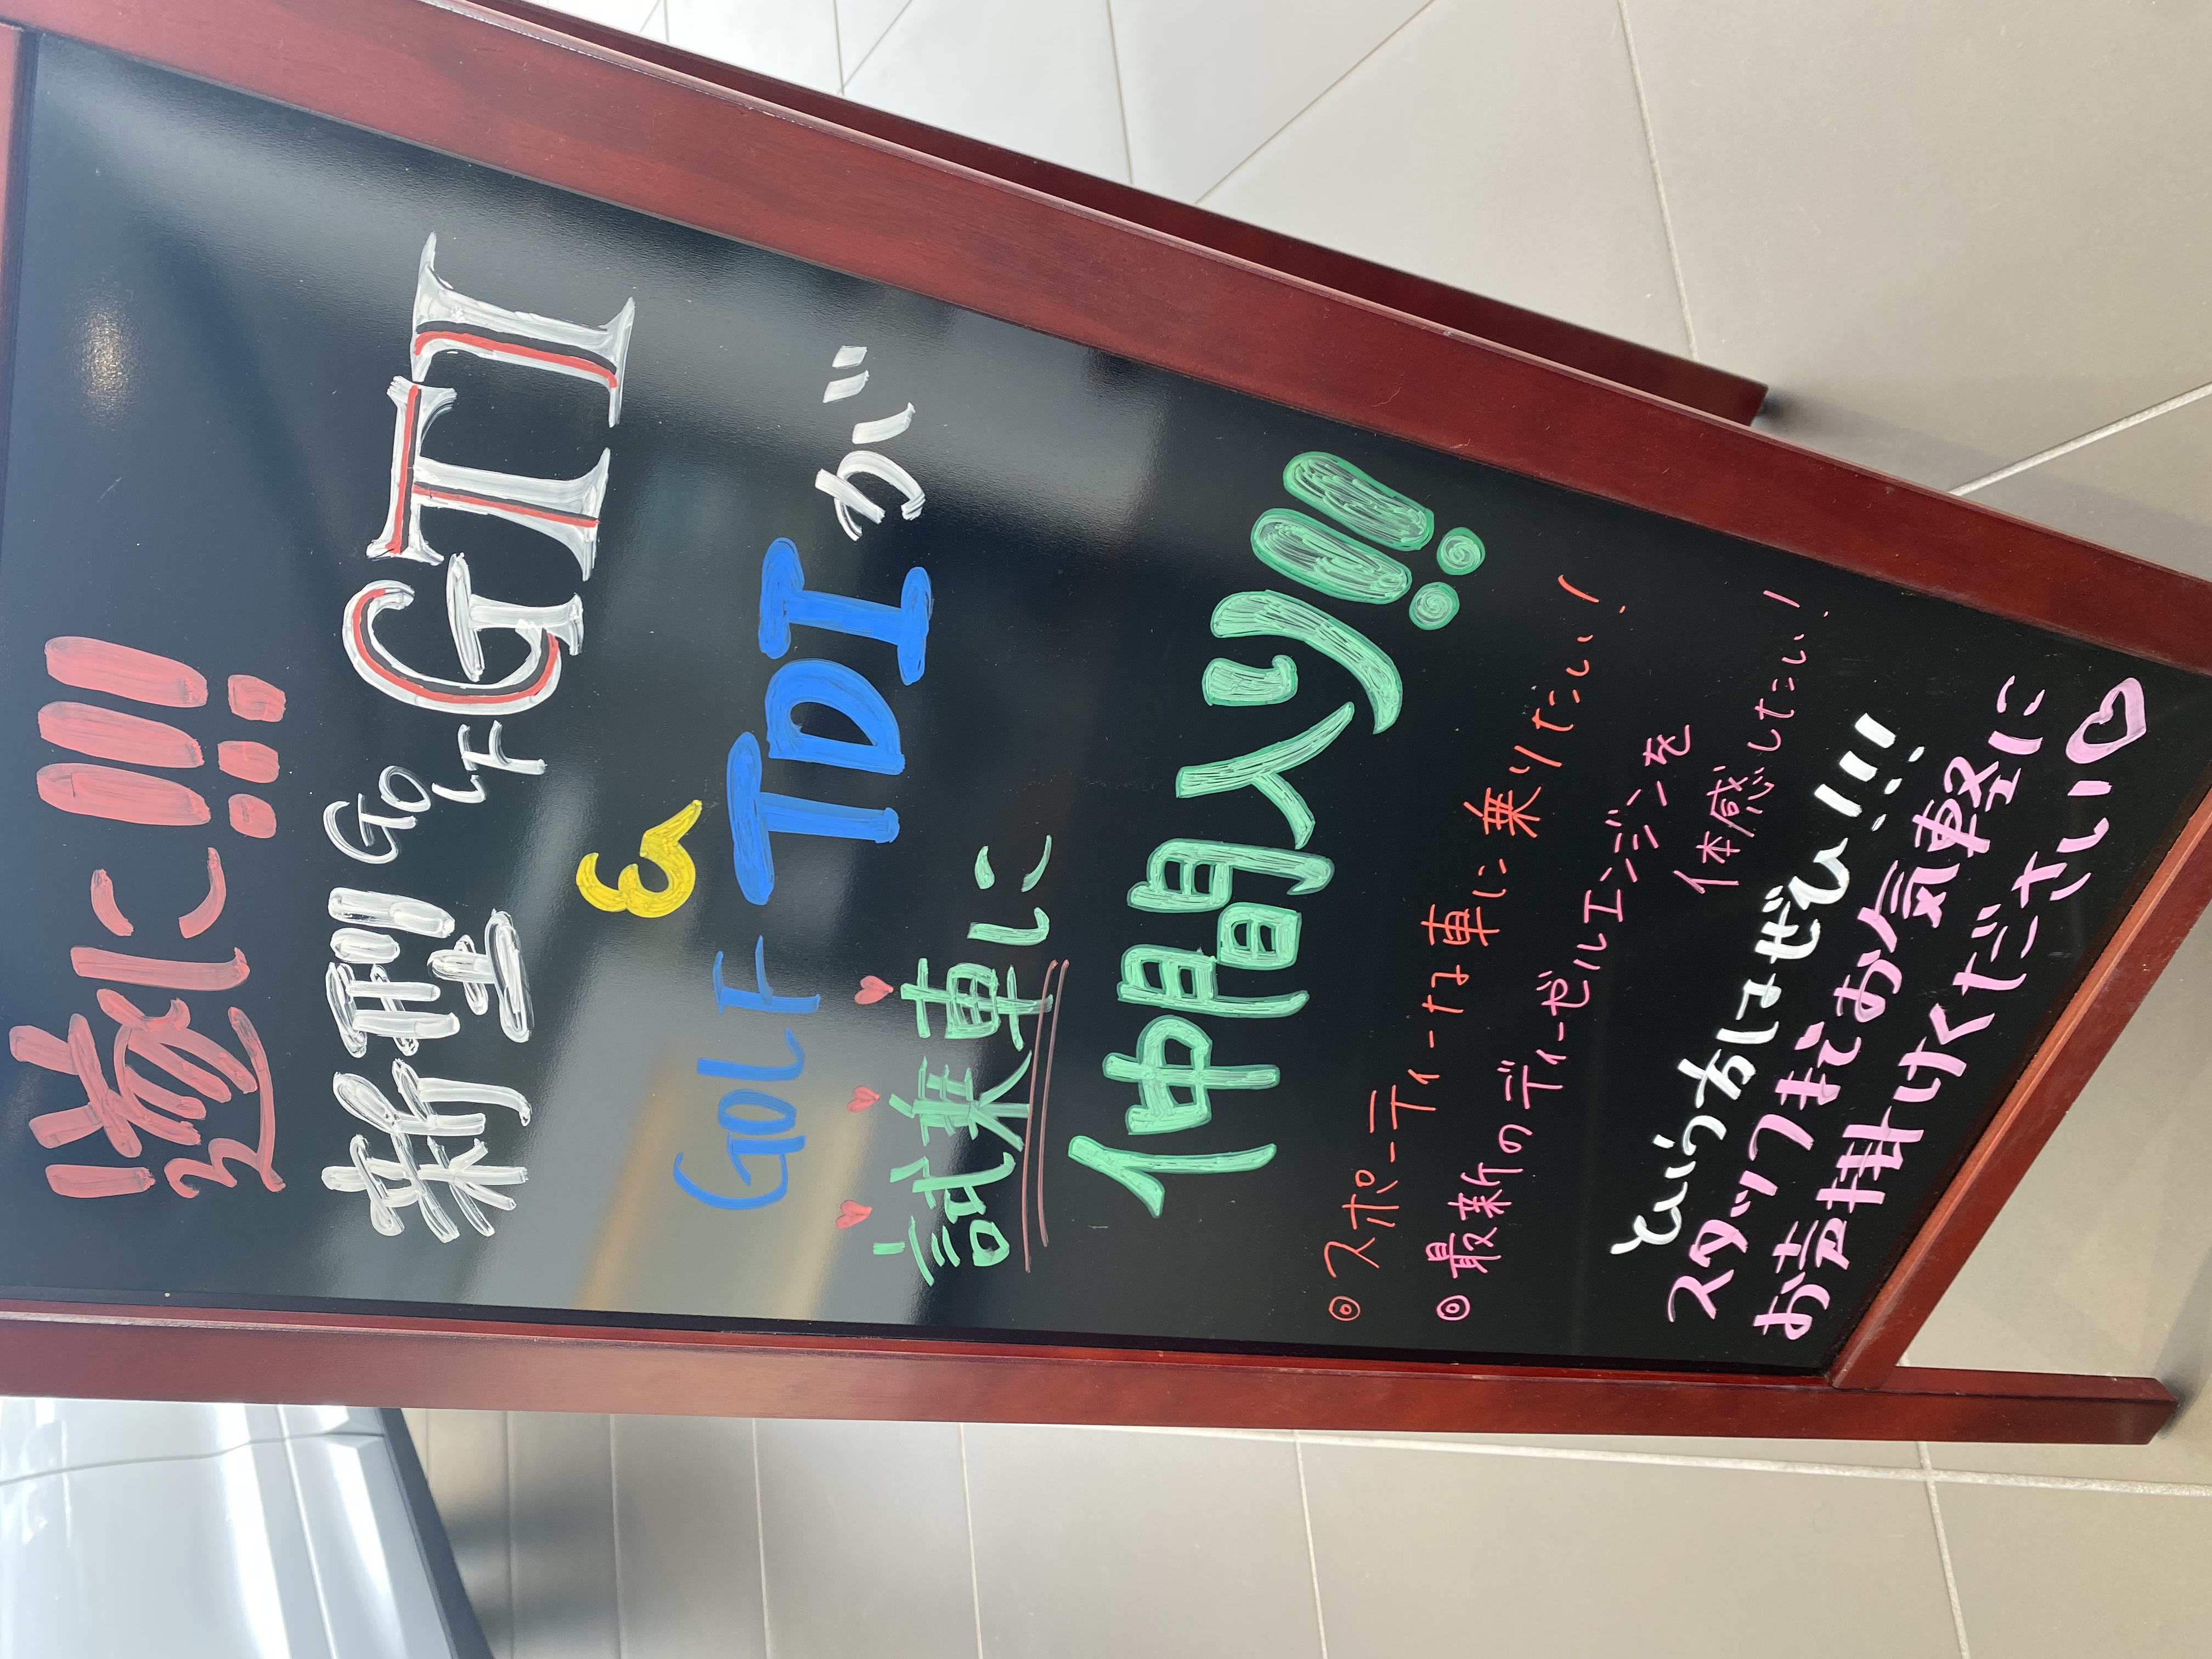 遂に!!!
新型 GOLF GTI
&
GOLF TDI が
試乗車に
仲間入り!!
◎スポーティーな車に乗りたい!
◎最新のディーゼルエンジンを
体感したい!
という方はぜひ!!!
スタッフまでお気軽に
お声掛けください♡